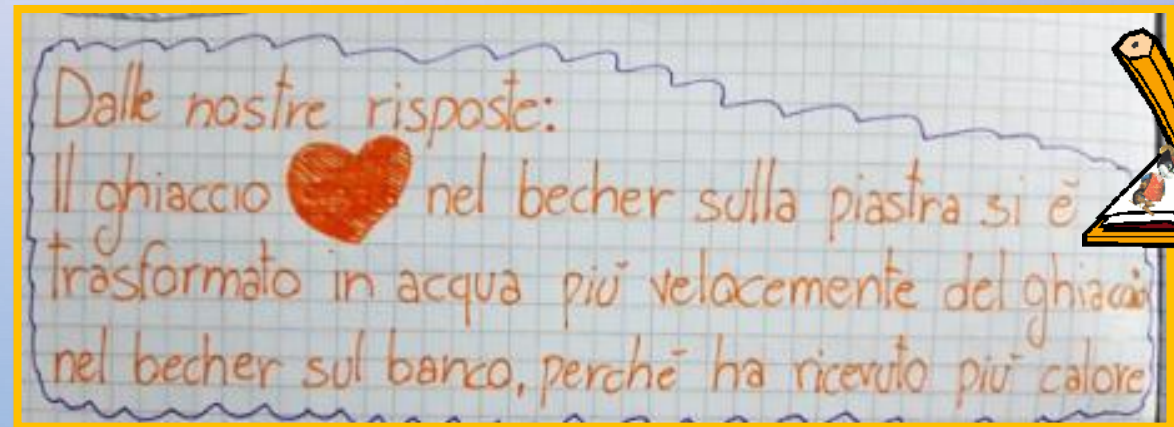 Dalle nostre risposte:
Il ghiaccio nel becher sulla piastra si è
trasformato in acqua più velocemente del ghiaccio
nel becher sul banco, perché ha ricevuto più calore